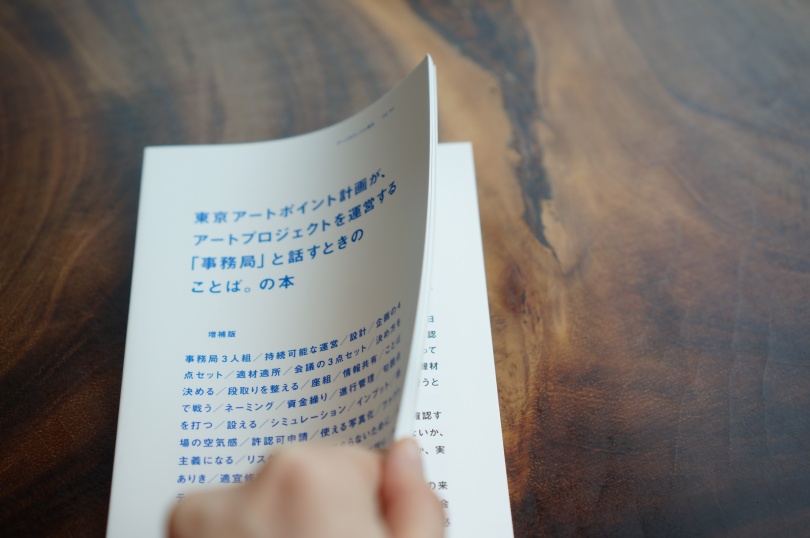 東京アートポイント計画が、
アートプロジェクトを運営する
「事務局」と話すときの
ことば。の本
増補版
事務局3人組／持続可能な運営／設計／企画の4
点セット／適材適所／会議の3点セット／決め方を
決める／段取りを整える／座組／情報共有／ことば
で戦う／ネーミング／資金繰り／進行管理／
を打つ／設える／シミュレーション／インプット
場の空気感／許認可申請／使える写真
主義になる／リスク
ありき／適宜
日
認
って
機材
うと
確認す
ないか、
か、実
の来
金